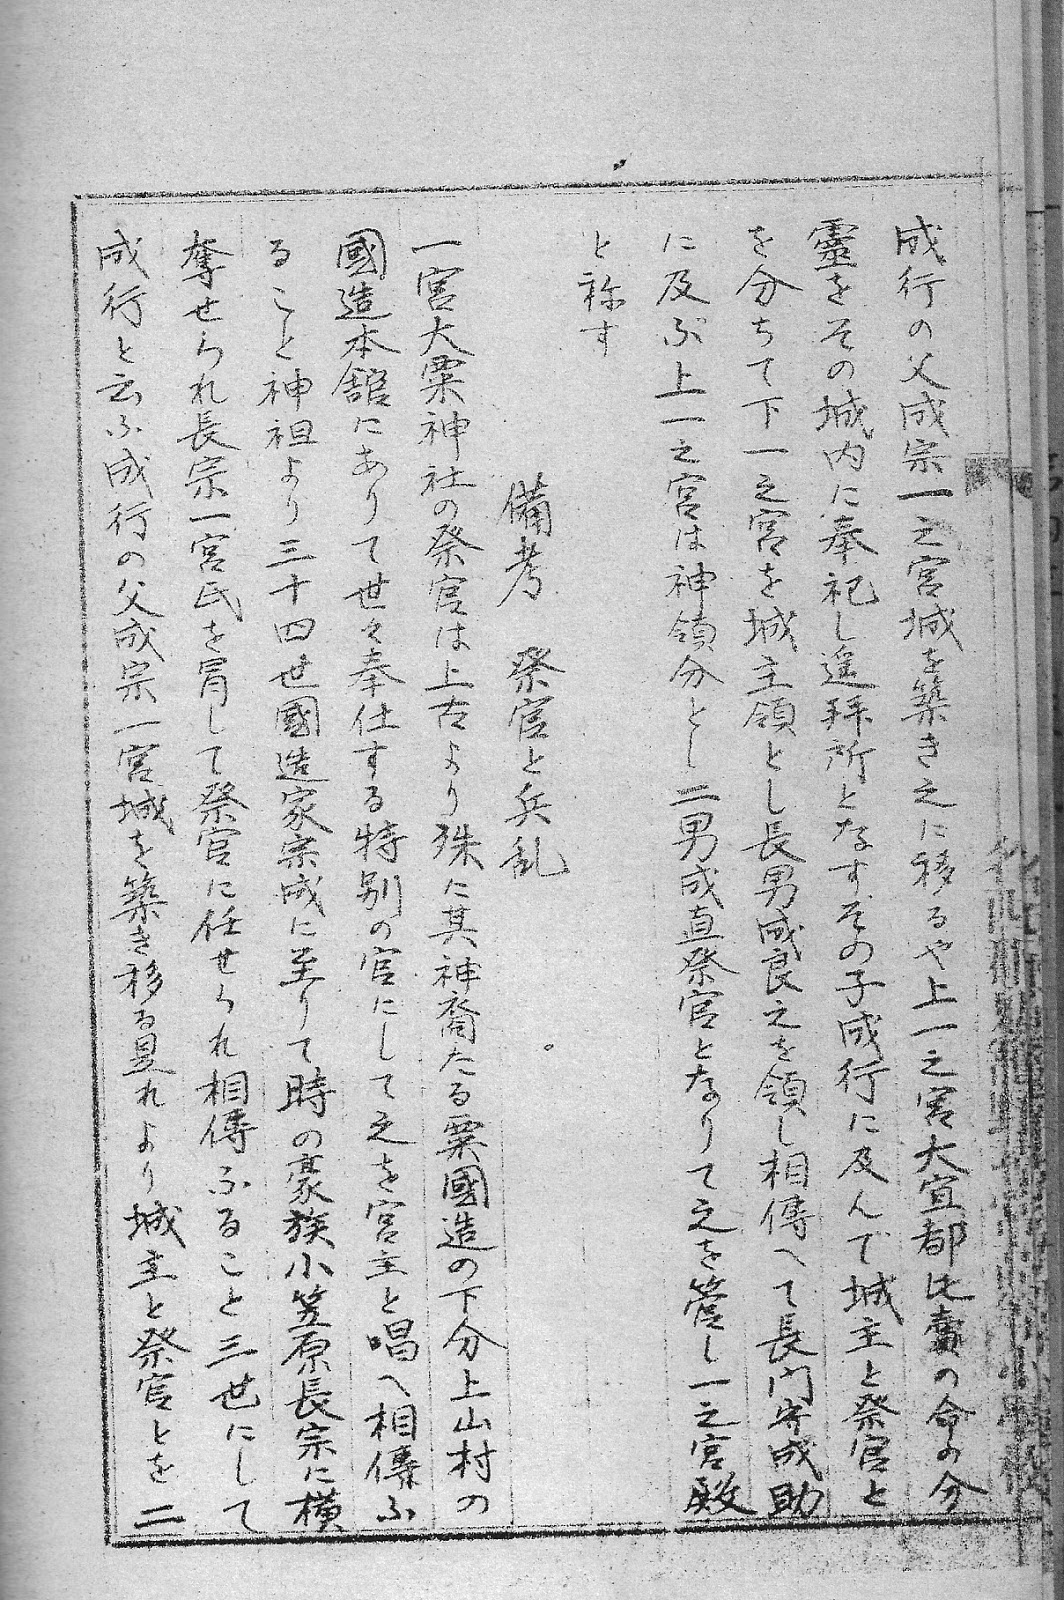 成行の父成宗一之宮城を築き之に移るや上一之宮大宜都比賣の命の分
靈をその城内に奉祀し遥拝所となすその子成行に及んで城主と祭官と
を分ちて下一之宮を城主領とし長男成良之を領し相傳へて長門守成助
に及ぶ上一之宮は神領分とし二男成直祭官となりて之を管し一之宮殿
と称す
備考 祭官と兵乱
一宮大粟神社の祭官は上古より殊に其神裔たる粟國造の下分上山村の
國造本舘にありて世々奉仕する特別の官にして之を宮主と唱へ相傳ふ
ること神祖より三十四世國造家宗成に至りて時の豪族小笠原長宗に横
奪せられ長宗一宮氏を冐して祭官に任せられ相傳ふること三世にして
成行と云ふ成行の父成宗一宮城を築き移る是れより城主と祭官とを二